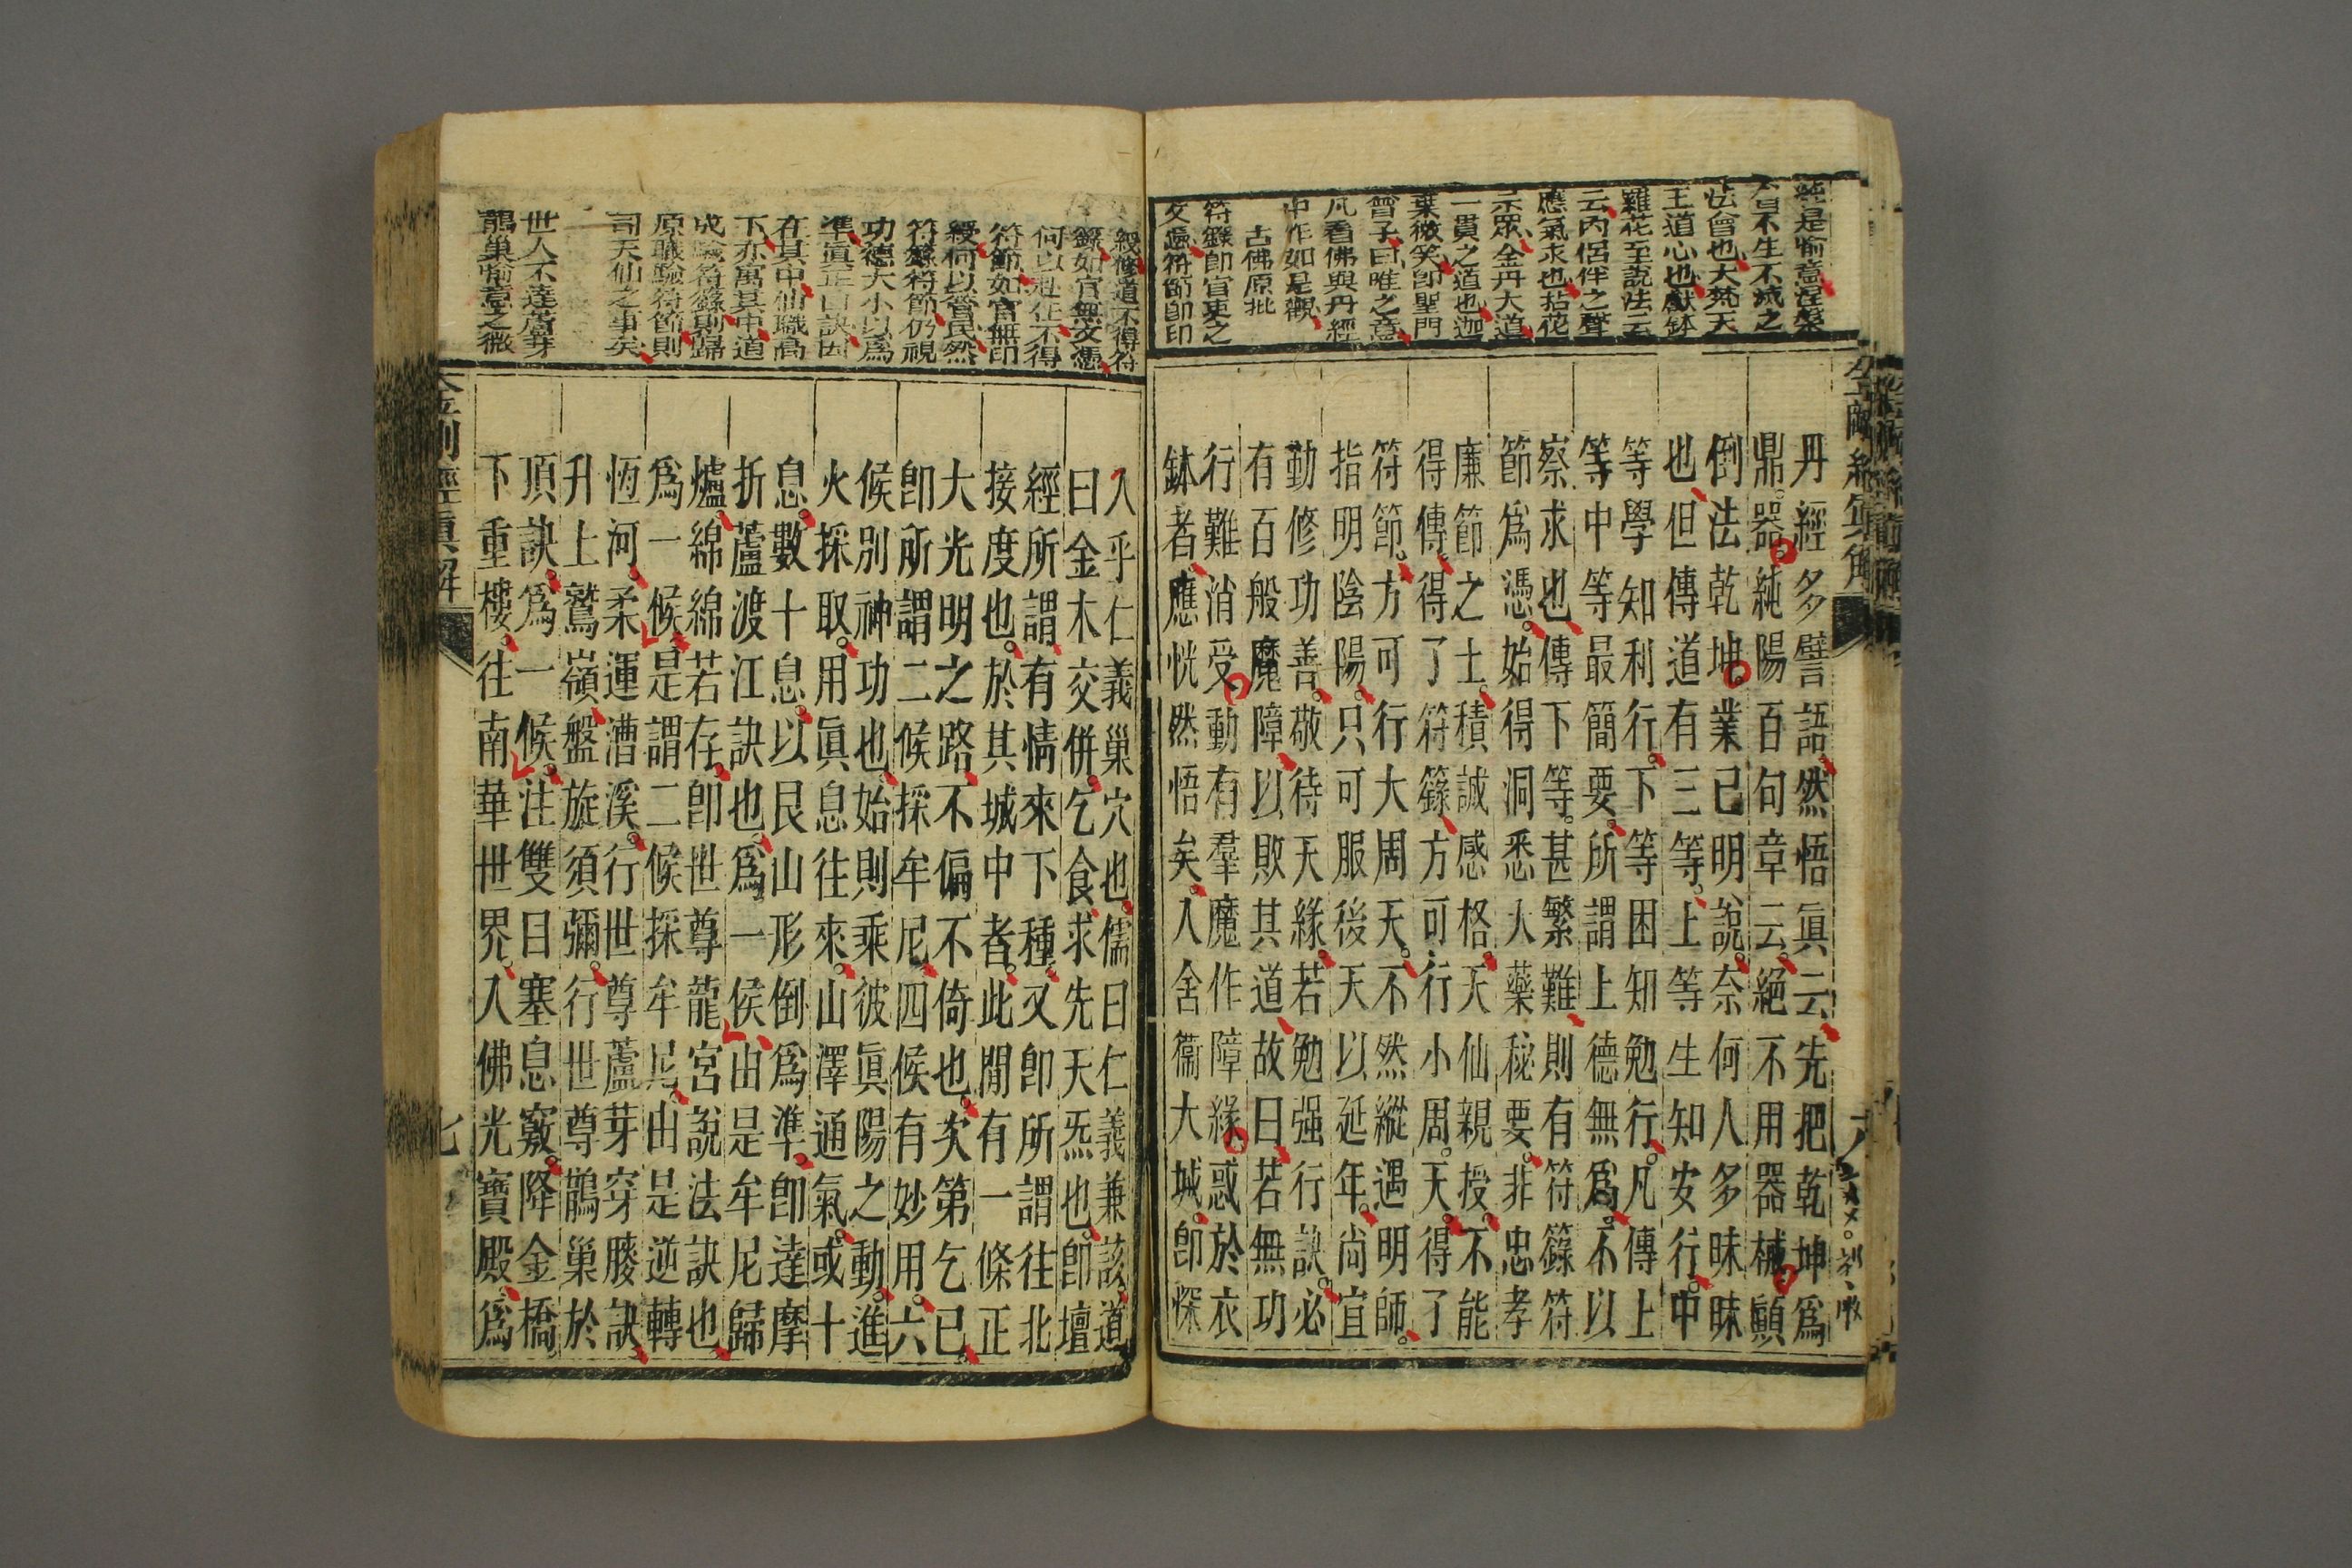 純是喻意涅槃
者不生不滅之
法會也大梵天
王道心也獻鉢
羅花至說法云
云丙侶伴之聲
應氣求也拈花
示眾金丹大道
一貫之道也迦
葉微笑卽聖門
曾子曰唯之意
凡看佛與丹經
中作如是觀
古佛原批
符籙卽官吏之
文憑符節卽印
丹經多譬語然悟眞云先把乾坤爲
鼎器純陽百句章云絕不用器械顚
倒法乾坤業已明說奈何人多昧昧
也但傳道有三等上等生知安行中
等學知利行下等困知勉行凡傳上
等中等最簡要所謂上德無爲不以
察求也傳下等甚繁難則有符籙符
節爲憑始得洞悉大藥秘要非忠孝
廉節之士積誠感格天仙親授不能
得傳得了符籙方可行小周天得了
符節方可行大周天不然縱遇明師
指明陰陽只可服後天以延年尚宜
動修功善敬待天緣若勉强行訣必
有百般魔障以敗其道故曰若無功
行難消受動有羣魔作障緣惑於衣
鉢者應恍然悟矣入舍衞大城卽深
金剛經眞解
六
綬修道不得符
籙如官無文憑
何以赴任不得
符節如官無印
綬何以管民然
符籙符節仍視
功德大小以爲
準眞正口訣因
在其中仙職高
下亦寓其中道
成驗符籙則歸
原職驗符節則
司天仙之事矣
世人不達蘆芽
鵲巢喻意之微
入乎仁義巢穴也儒曰仁義兼該道
曰金木交併乞食求先天炁也卽壇
經所謂有情來下種又卽所謂往北
接度也於其城中者此閒有一條正
大光明之路不偏不倚也次第乞已
卽所謂二候採牟尼四候有妙用六
候別神功也始則乘彼眞陽之動進
火採取用眞息往來山澤通氣或十
息數十息以艮山形倒爲準卽達摩
折蘆渡江訣也爲一侯由是牟尼歸
爐綿綿若存卽世尊龍宮說法訣也
爲一候是謂二候採牟尼由是逆轉
恆河柔運漕溪行世尊蘆芽穿膝訣
升上鷲嶺盤旋須彌行世尊鵲巢於
頂訣爲一候注雙目塞息竅降金橋
下重樓往南華世界入佛光寶殿爲
金剛經眞解
七